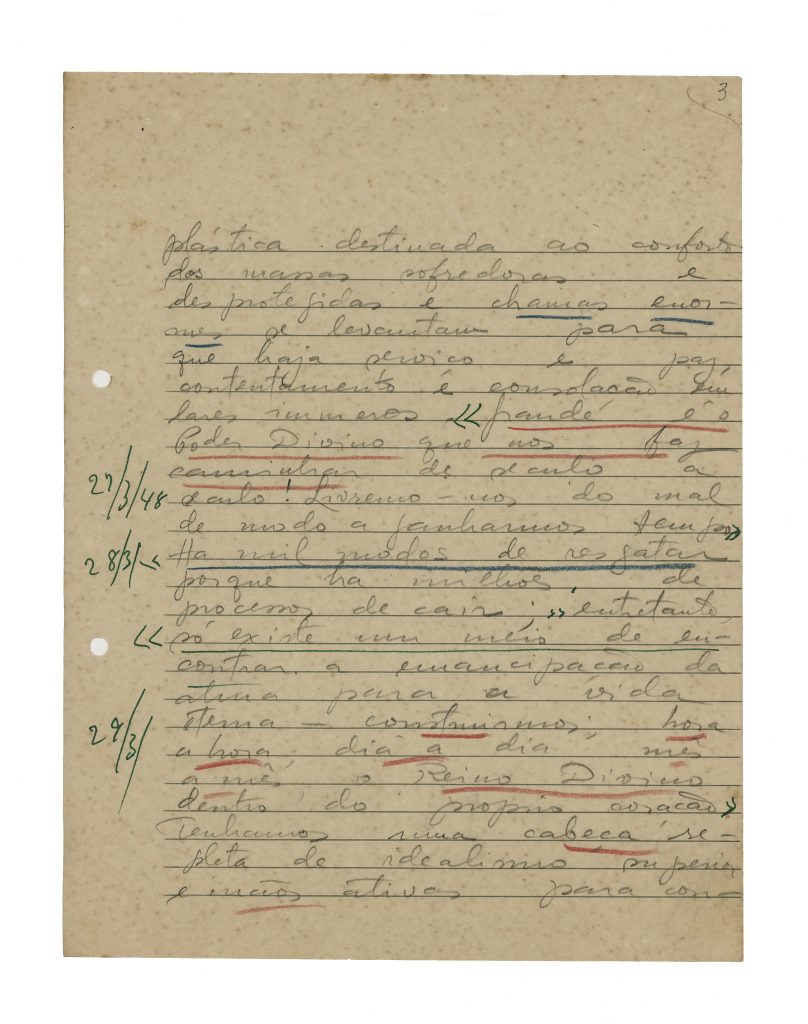 3
plástica destinada ao conforto
dos massas sofredoras e
desprotegidas e chamas enor-
mes se levantam para
que haja serviço e paz,
contentamento e consolação em
lares inumeros. << Grande é o
Poder Divino que nos faz
caminhar de seculo a
27/3/48 seculo! Livremo-nos do mal
de modo a ganharmos tempo >>
28/3/ << Ha mil modos de resgatar
porque ha milhões de
processos de cair; >> entretanto,
<< só existe um meio de en-
contrar a emancipação da
alma para a vida
29/3/ eterna — construirmos, hora
a hora, dia a dia, mês
a mês o Reino Divino
dentro do proprio coração >>
Tenhamos uma cabeça re-
pleta de idealismo superior
e mãos ativas para con-